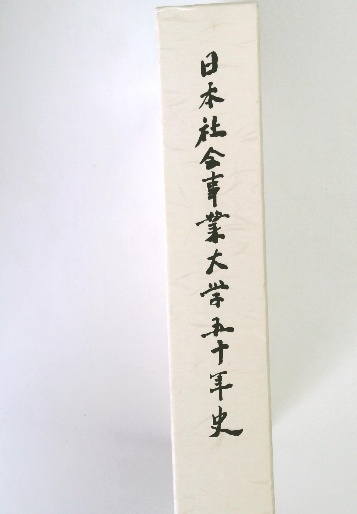 日本社会事業大学五十年史